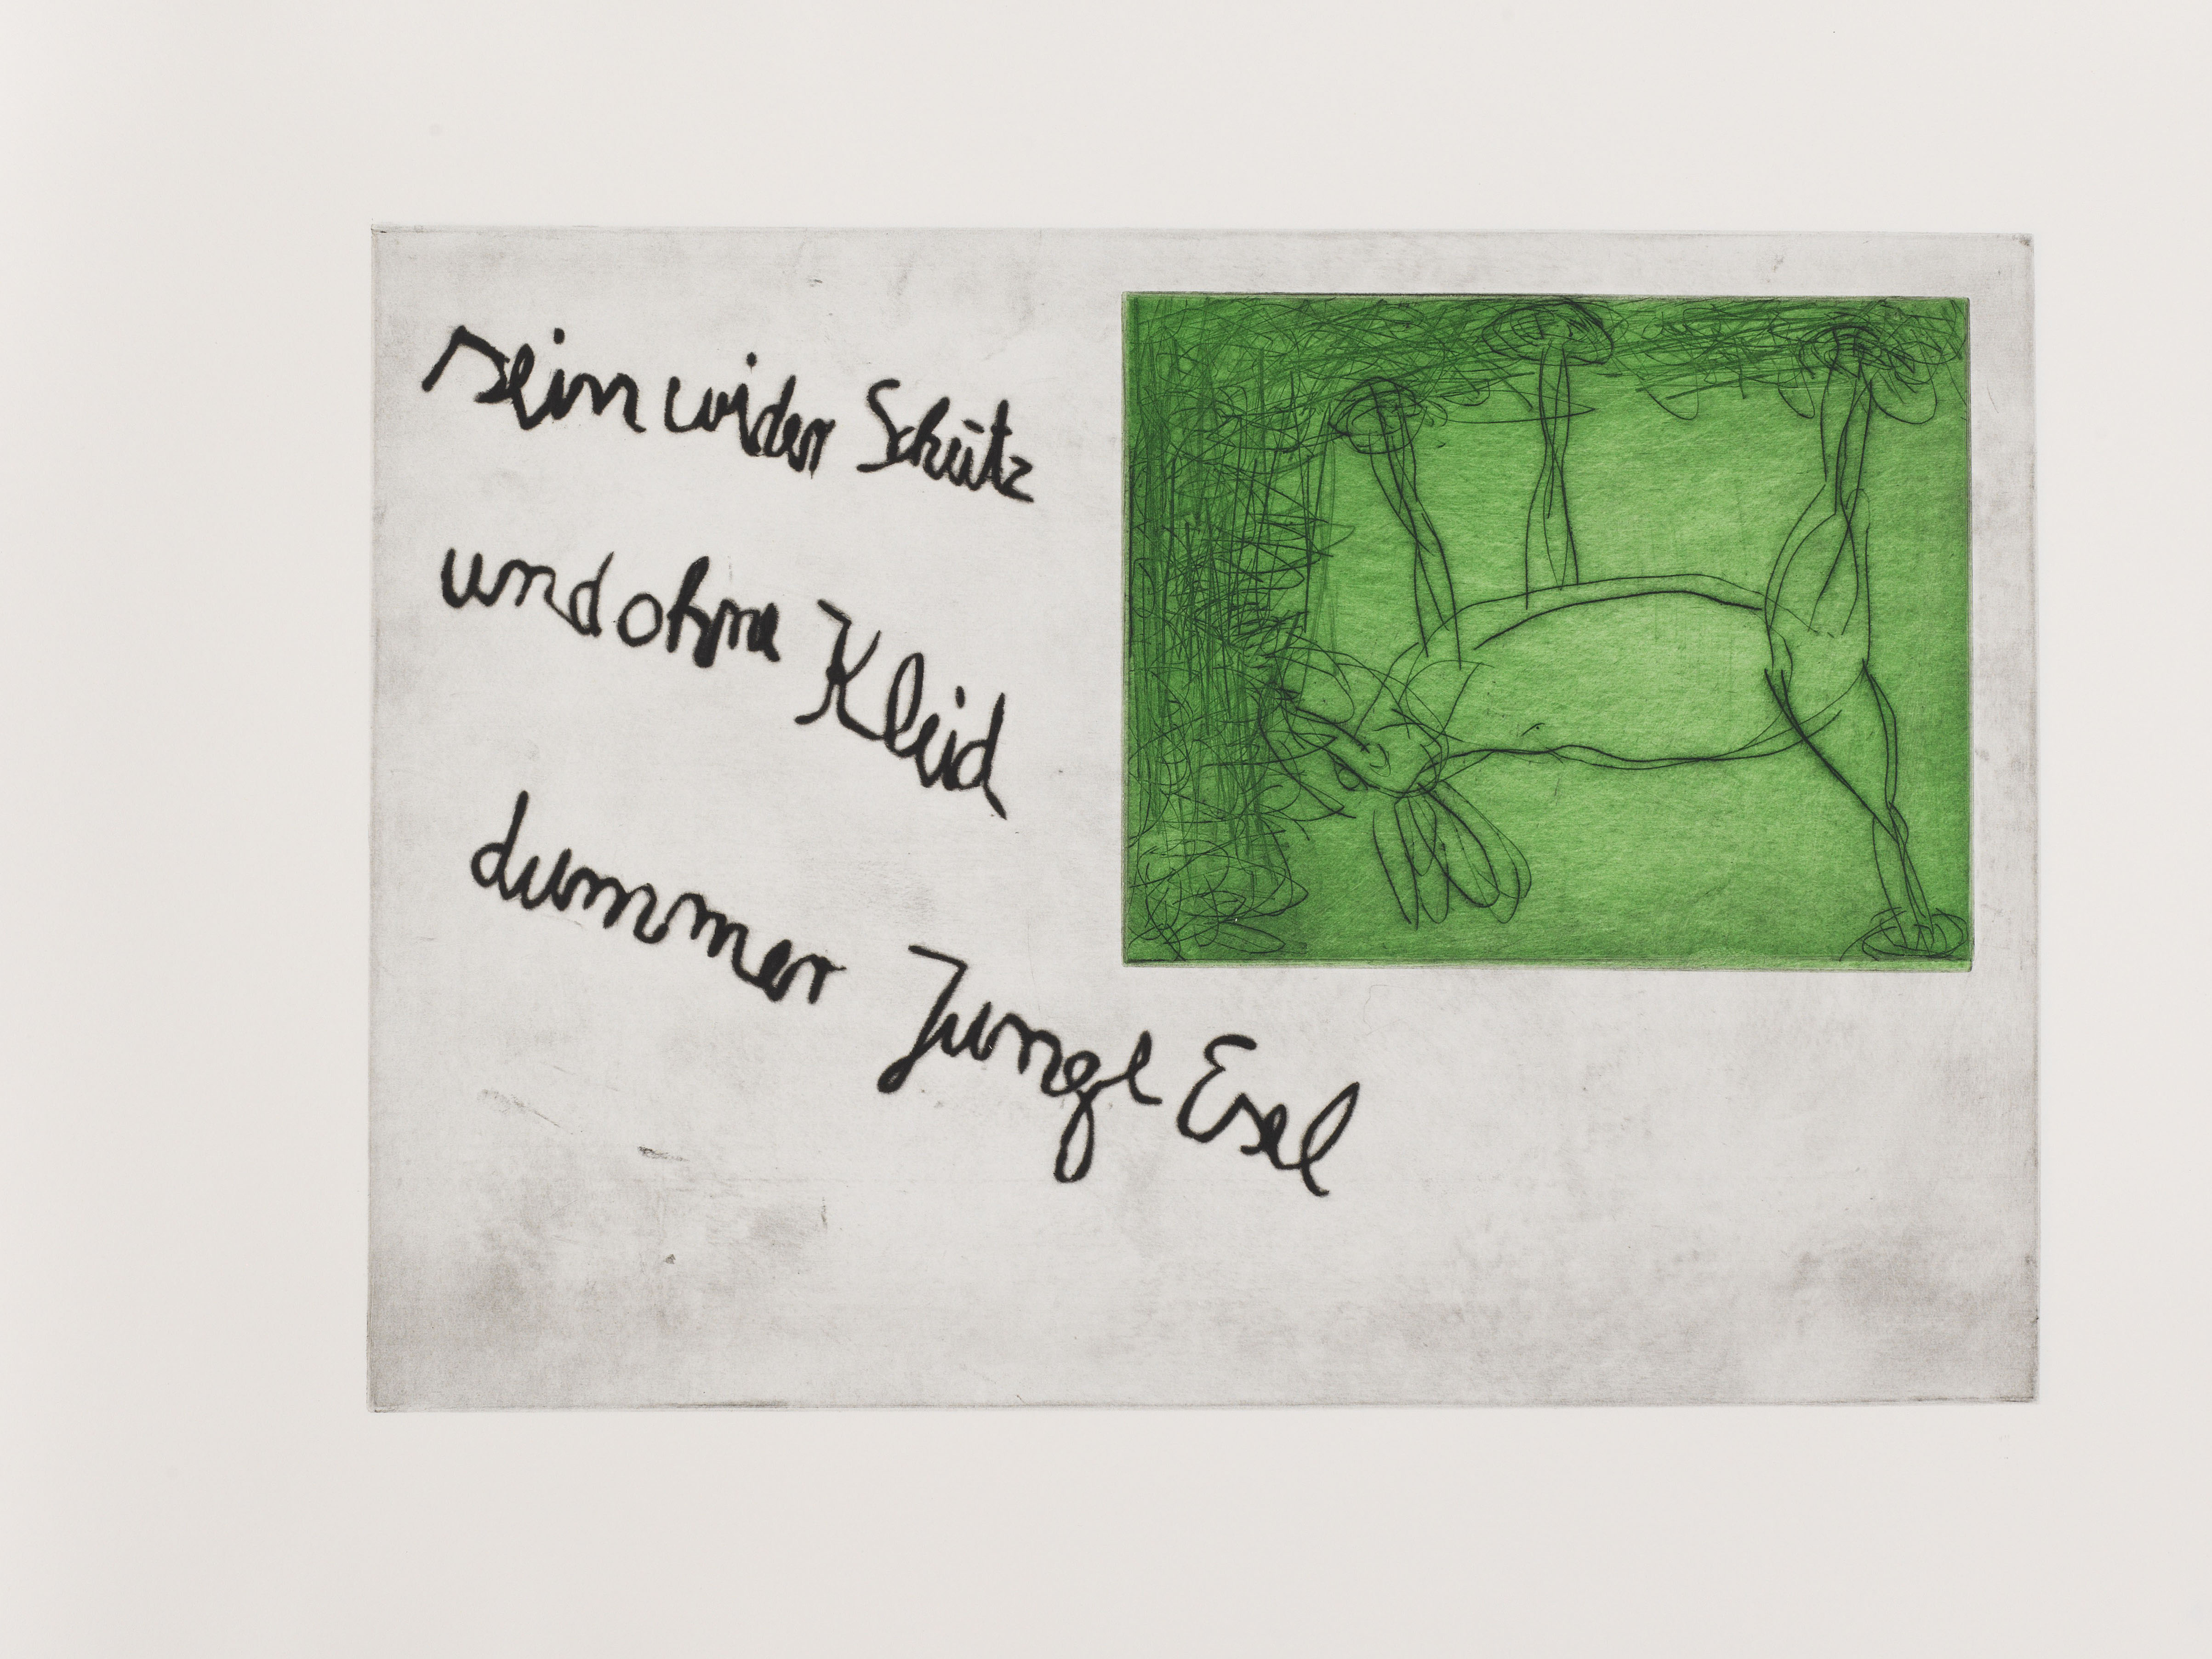 sein wider Schütz
und ohne Kleid
dummer Junge Esel